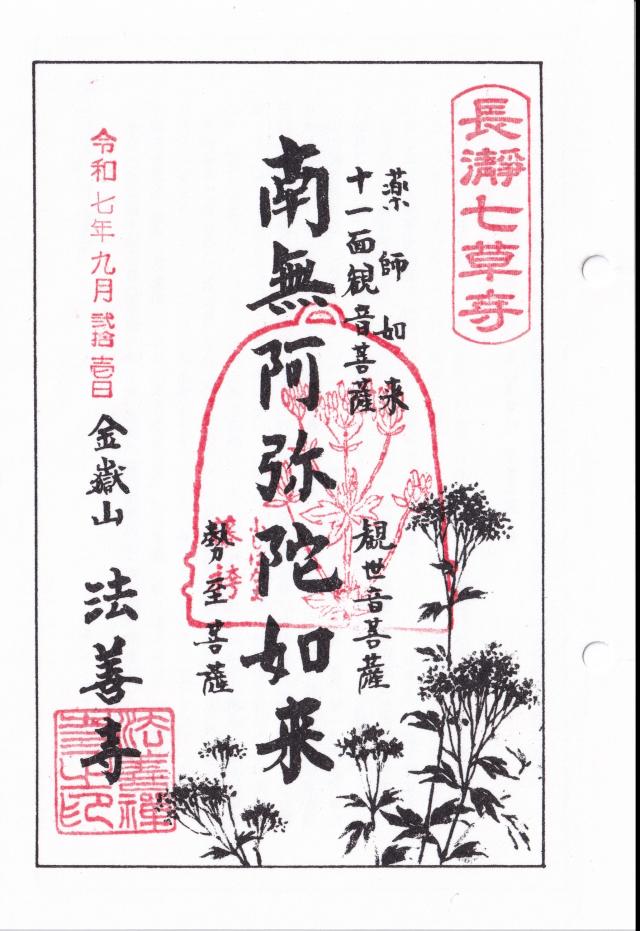 長瀞七草寺
薬師如来
十一面観音菩薩
観世音菩薩
南無阿弥陀如来
勢至菩薩
令和七年九月弐拾壱日
金嶽山
法善寺